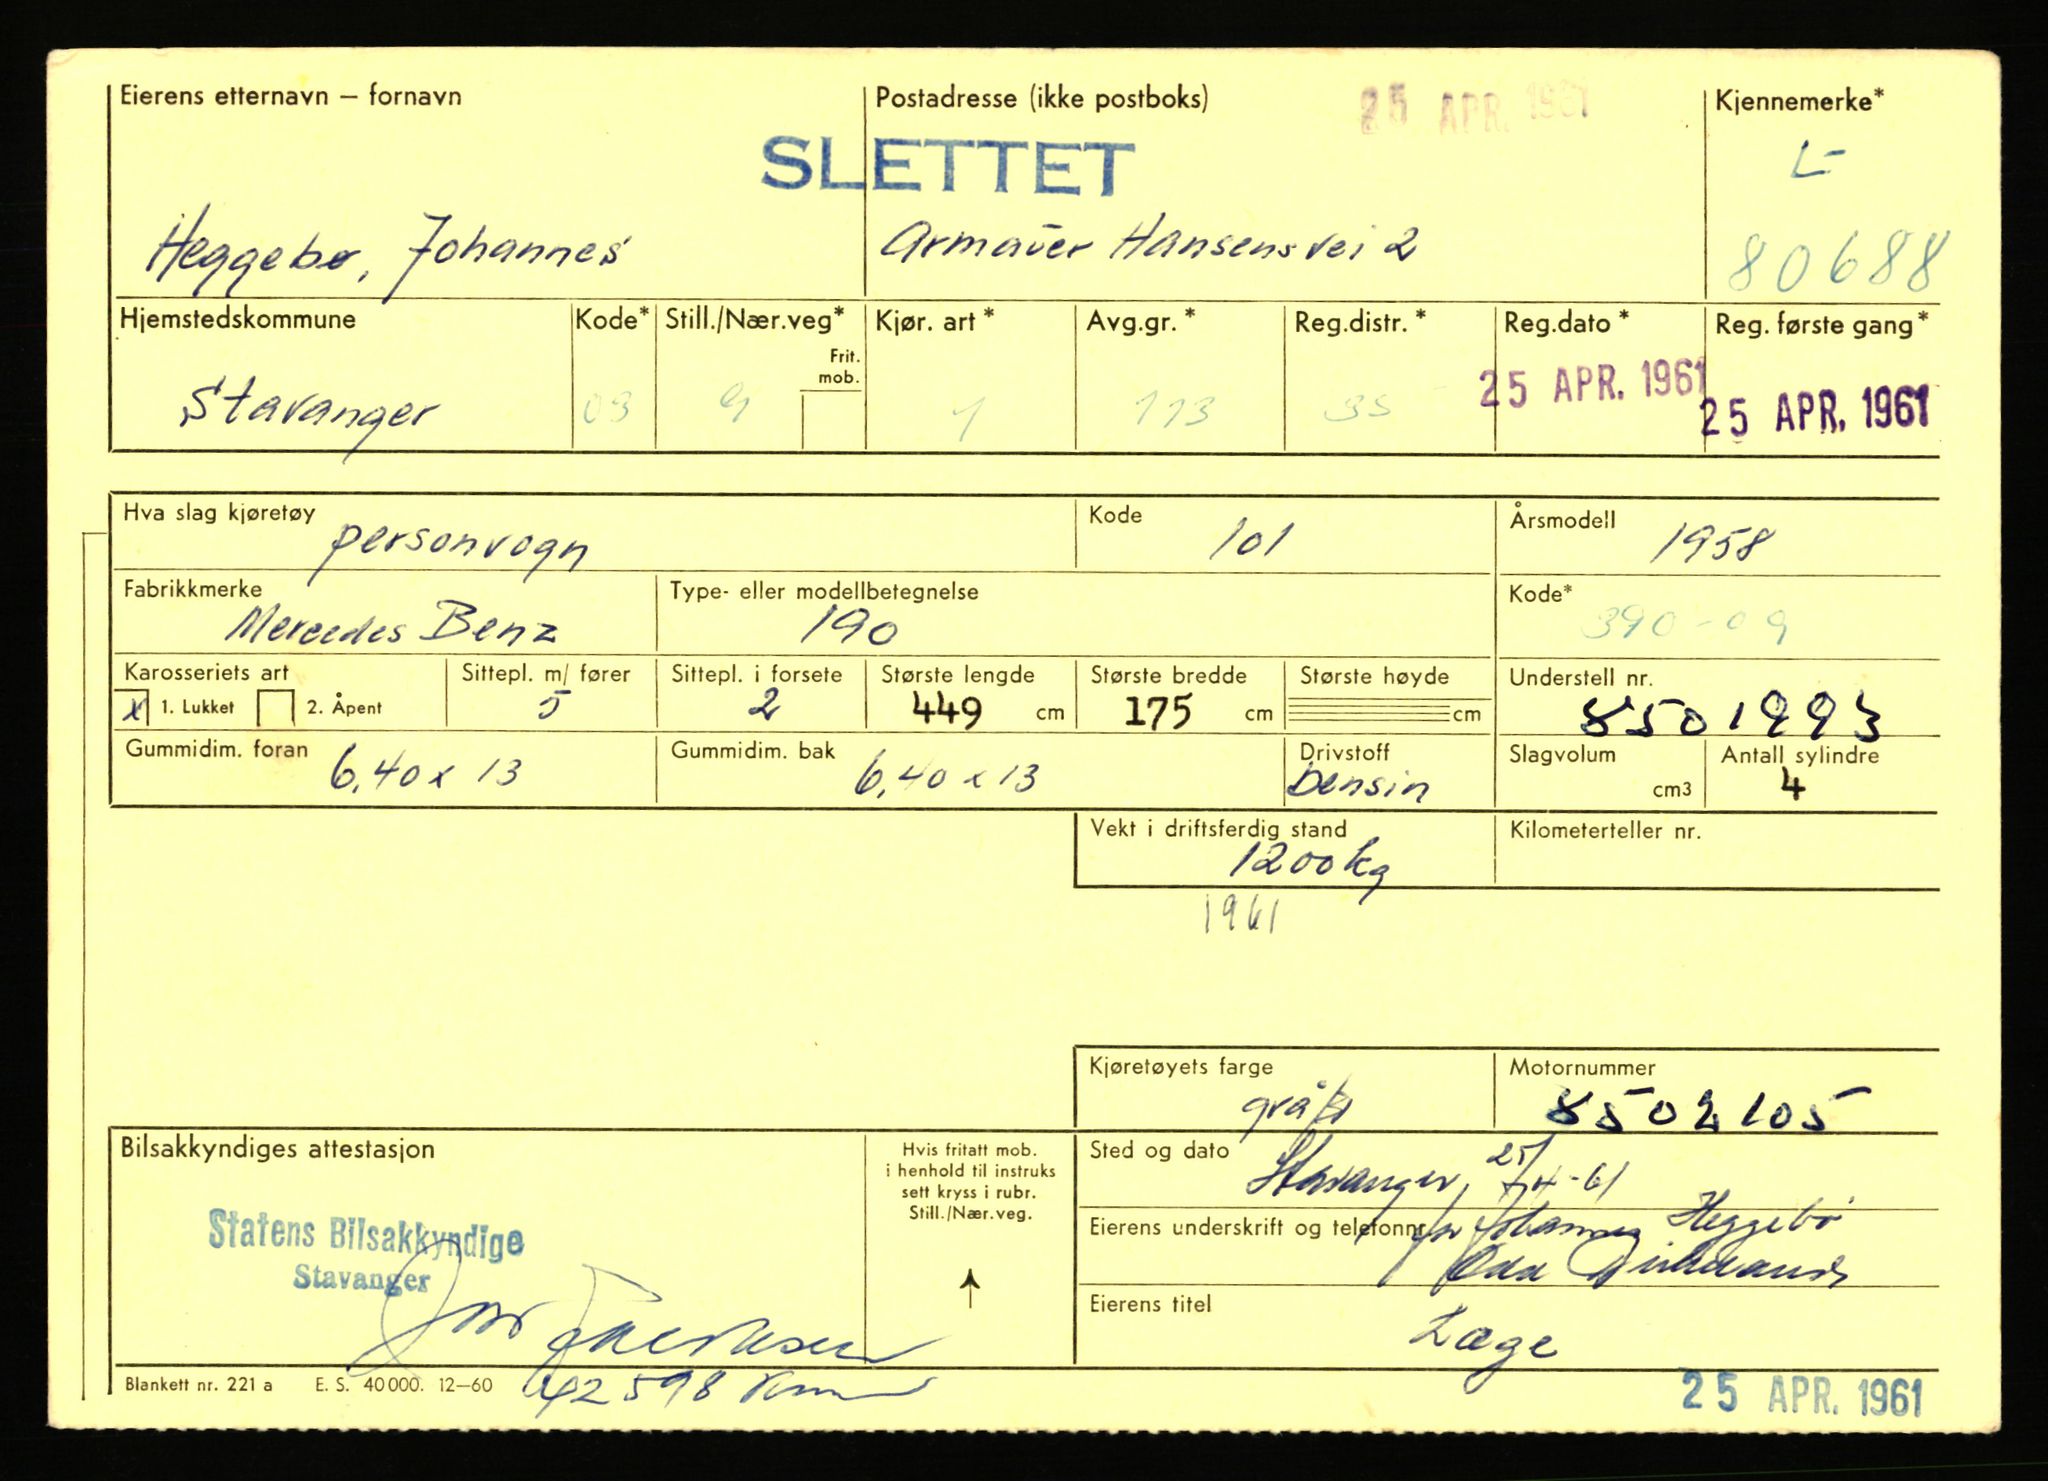 Eierens etternavn – fornavn
Postadresse (ikke postboks)
25 APR. 1961
Kjennemerke*
SLETTET
L-
Heggebø, Johannes
Armauer Hansensvei 2
80688
Hjemstedskommune
Kode*
Still./Nær.veg*
Frit. mob.
Kjør. art*
Avg.gr.*
Reg.distr.*
Reg.dato*
Reg. første gang*
Stavanger
03
9
1
113
35
25 APR. 1961
25 APR. 1961
Hva slag kjøretøy
personvogn
Kode
101
Årsmodell
1958
Fabrikkmerke
Mercedes Benz
Type- eller modellbetegnelse
190
Kode*
390-09
Karosseriets art
x 1. Lukket
2. Åpent
Sittepl. m/ fører
5
Sittepl. i forsete
2
Største lengde
449 cm
Største bredde
175 cm
Største høyde
cm
Understell nr.
8501993
Gummidim. foran
6,40 x 13
Gummidim. bak
6,40 x 13
Drivstoff
bensin
Slagvolum
cm3
Antall sylindre
4
Vekt i driftsferdig stand
1200 kg
Kilometerteller nr.
1961
Kjøretøyets farge
grå
Motornummer
8502105
Bilsakkyndiges attestasjon
Hvis fritatt mob.
i henhold til instruks
sett kryss i rubr.
Still./Nær.veg.
Sted og dato
Stavanger, 25/4-61
Statens Bilsakkyndige
Stavanger
Eierens underskrift og telefonnr.
Johannes Heggebø
Odd
Eierens titel
Læge
Blankett nr. 221 a E. S. 40 000. 12–60
42598 km
25 APR. 1961